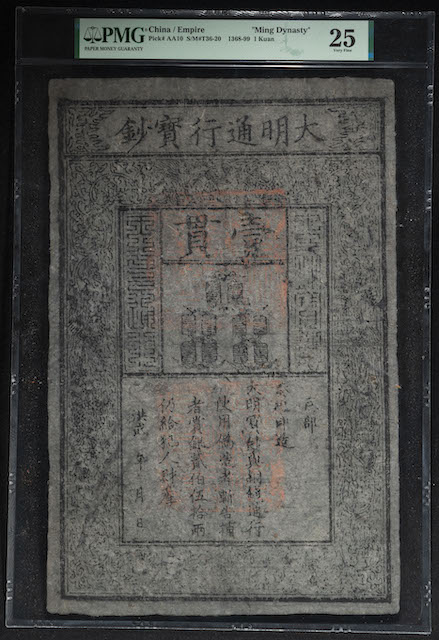 PMG China / Empire "Ming Dynasty" 25
PAPER MONEY GUARANTY Pick# AA10 S/M#T36-20 1368-99 1 Kuan Very Fine
大明通行寶鈔
壹貫
戶部
奏准印造
大明寶鈔與銅錢通行
使用偽造者斬告捕
者賞銀貳伯伍拾兩
仍給犯人財產
洪武 年 月 日